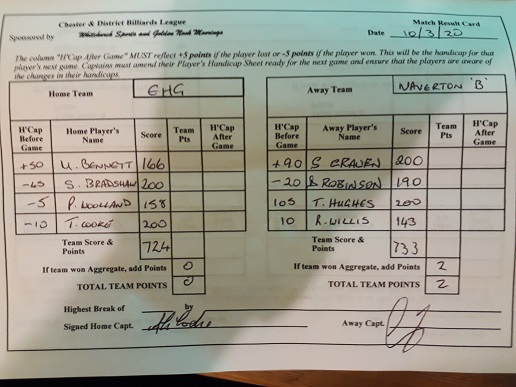 Chester & District Billiards League
Match Result Card
Sponsored by Whitchurch Sports and Golden Nook Moorings
Date 10/3/20
The column "H'Cap After Game" MUST reflect +5 points if the player lost or -5 points if the player won. This will be the handicap for that
player's next game. Captains must amend their Player's Handicap Sheet ready for the next game and ensure that the players are aware of
the changes in their handicaps.
Home Team GHG
H'Cap Before Game Home Player's Name Score Team Pts H'Cap After Game
+50 M. BENNETT 166
-45 S. BRADSHAW 200
-5 P. WOOLLAND 158
-10 T. COOKE 200
Team Score & Points 724
If team won Aggregate, add Points 0
TOTAL TEAM POINTS 0
Away Team NAVERTON 'B'
H'Cap Before Game Away Player's Name Score Team Pts H'Cap After Game
+90 S CRAVEN 200
-20 B ROBINSON 190
105 T. HUGHES 200
10 R. WILLIS 143
Team Score & Points 733
If team won Aggregate, add Points 2
TOTAL TEAM POINTS 2
Highest Break of by
Signed Home Capt.
Away Capt.